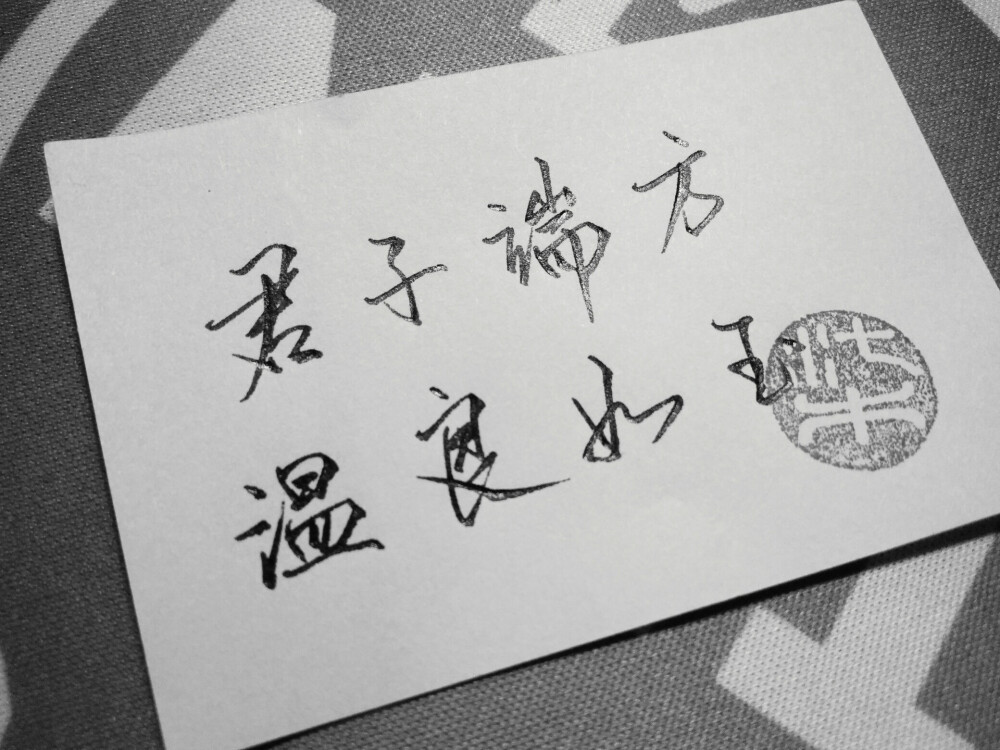 君子端方
温良如玉